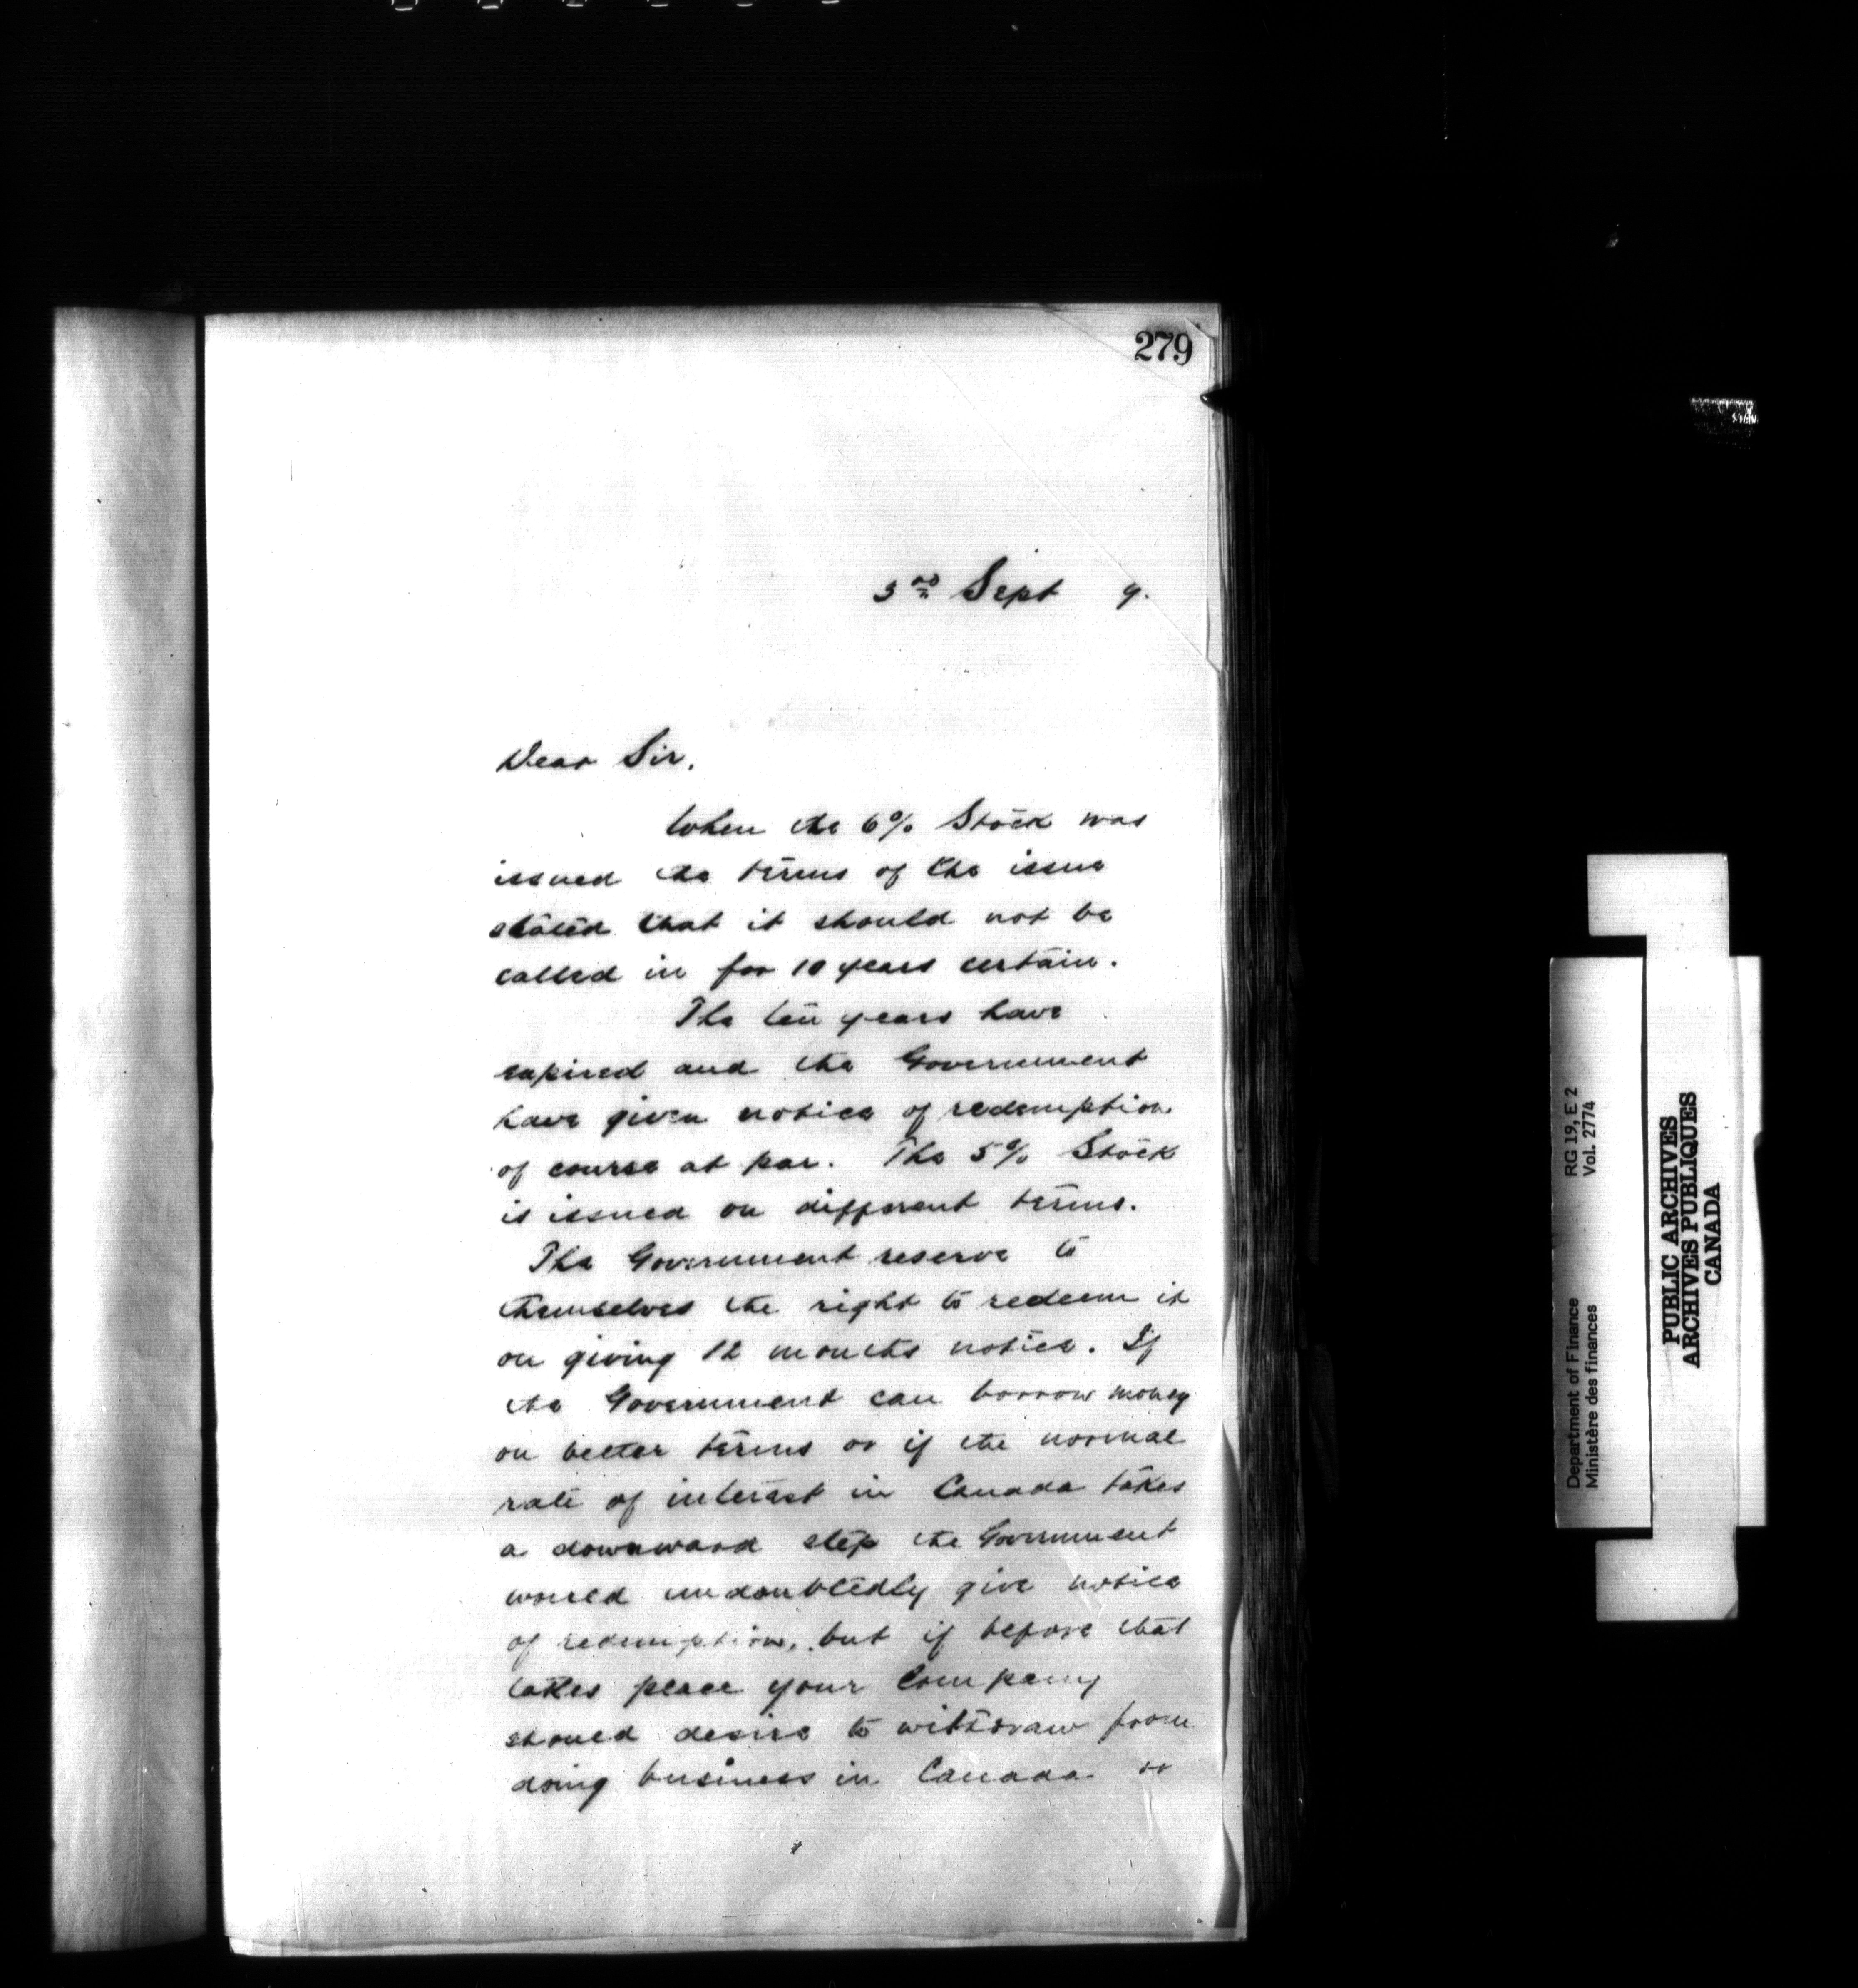 279
3rd Sept 9.
Dear Sir,
When the 6% Stock was
issued the terms of the issue
stated that it should not be
called in for 10 years certain.
The ten years have
expired and the Government
have given notice of redemption
of course at par. The 5% Stock
is issued on different terms.
The Government reserve to
themselves the right to redeem it
on giving 12 months notice. If
the Government can borrow money
on better terms or if the normal
rate of interest in Canada takes
a downward step the Government
would undoubtedly give notice
of redemption, but if before that
takes place your Company
should desire to withdraw from
doing business in Canada or
Department of Finance RG 19, E 2
Ministère des finances Vol. 2774
PUBLIC ARCHIVES
ARCHIVES PUBLIQUES
CANADA